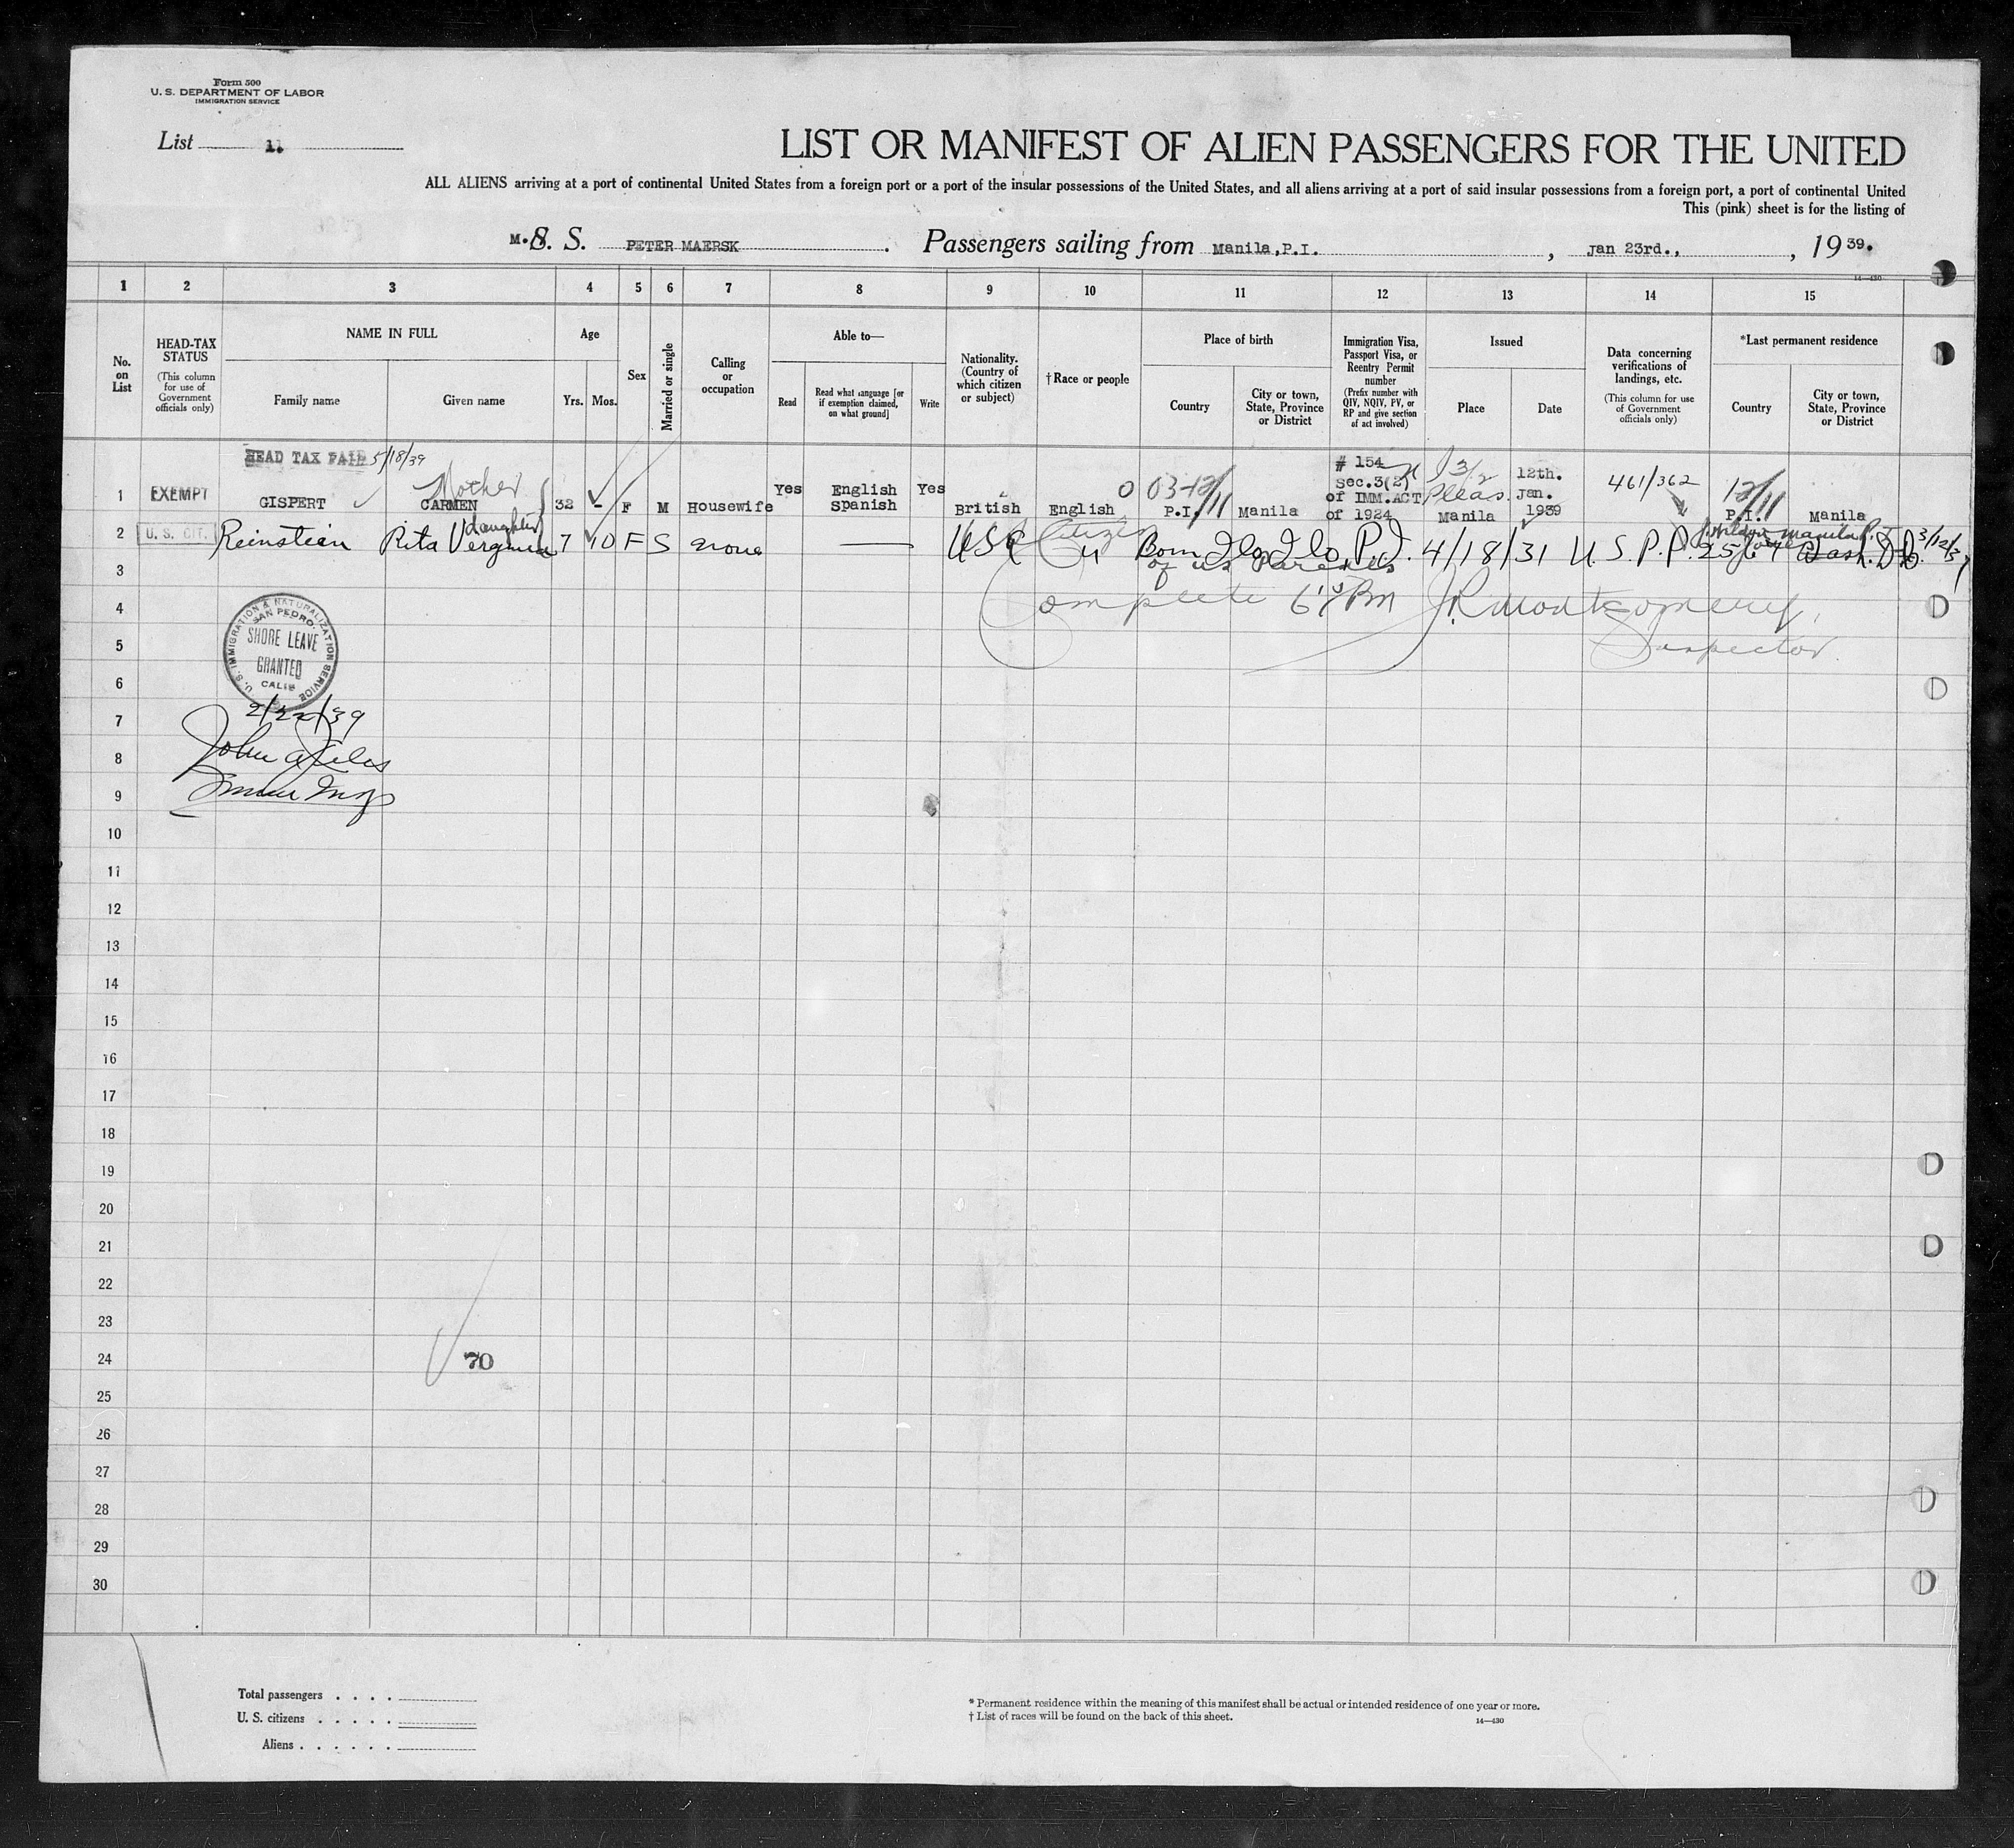 Form 500
U. S. DEPARTMENT OF LABOR
IMMIGRATION SERVICE
List 1.
LIST OR MANIFEST OF ALIEN PASSENGERS FOR THE UNITED
ALL ALIENS arriving at a port of continental United States from a foreign port or a port of the insular possessions of the United States, and all aliens arriving at a port of said insular possessions from a foreign port, a port of continental United
This (pink) sheet is for the listing of
M. S. S. PETER MAERSK. Passengers sailing from Manila,P.I., Jan 23rd., , 19 39.
14—430
1 2 3 4 5 6 7 8 9 10 11 12 13 14 15
No. on List
HEAD-TAX STATUS
(This column for use of Government officials only)
NAME IN FULL
Family name
Given name
Age
Yrs. Mos.
Sex
Married or single
Calling or occupation
Able to—
Read
Read what language [or if exemption claimed, on what ground]
Write
Nationality. (Country of which citizen or subject)
†Race or people
Place of birth
Country
City or town, State, Province or District
Immigration Visa, Passport Visa, or Reentry Permit number
(Prefix number with QIV, NQIV, PV, or RP and give section of act involved)
Issued
Place
Date
Data concerning verifications of landings, etc.
(This column for use of Government officials only)
*Last permanent residence
Country
City or town, State, Province or District
HEAD TAX PAID 5/18/39
Mother
1 EXEMPT GISPERT CARMEN 32 - F M Housewife Yes English Spanish Yes British English P.I. Manila # 154 Sec.3(2) of IMM.ACT of 1924 Manila 12th. Jan. 1939 461/362 P.I. Manila
03-12/11
13/2
Pleas.
12/11
daughter
2 U. S. CIT. Reinstein Rita Verginia 7 10 F S none — USA Citizen Born Ilo Ilo P.I. 4/18/31 U. S. P.P. Wash. D.C. 3/12/37
of US Parents
3
4 Complete 6 PM J.R. Montgomery,
5 Inspector.
U. S. IMMIGRATION & NATURALIZATION SERVICE
SAN PEDRO,
SHORE LEAVE
GRANTED
CALIF
6
7 2/22/39
8 John
9
10
11
12
13
14
15
16
17
18
19
20
21
22
23
24 70
25
26
27
28
29
30
Total passengers . . . .
U. S. citizens . . . . .
Aliens . . . . . .
* Permanent residence within the meaning of this manifest shall be actual or intended residence of one year or more.
† List of races will be found on the back of this sheet.
14—430